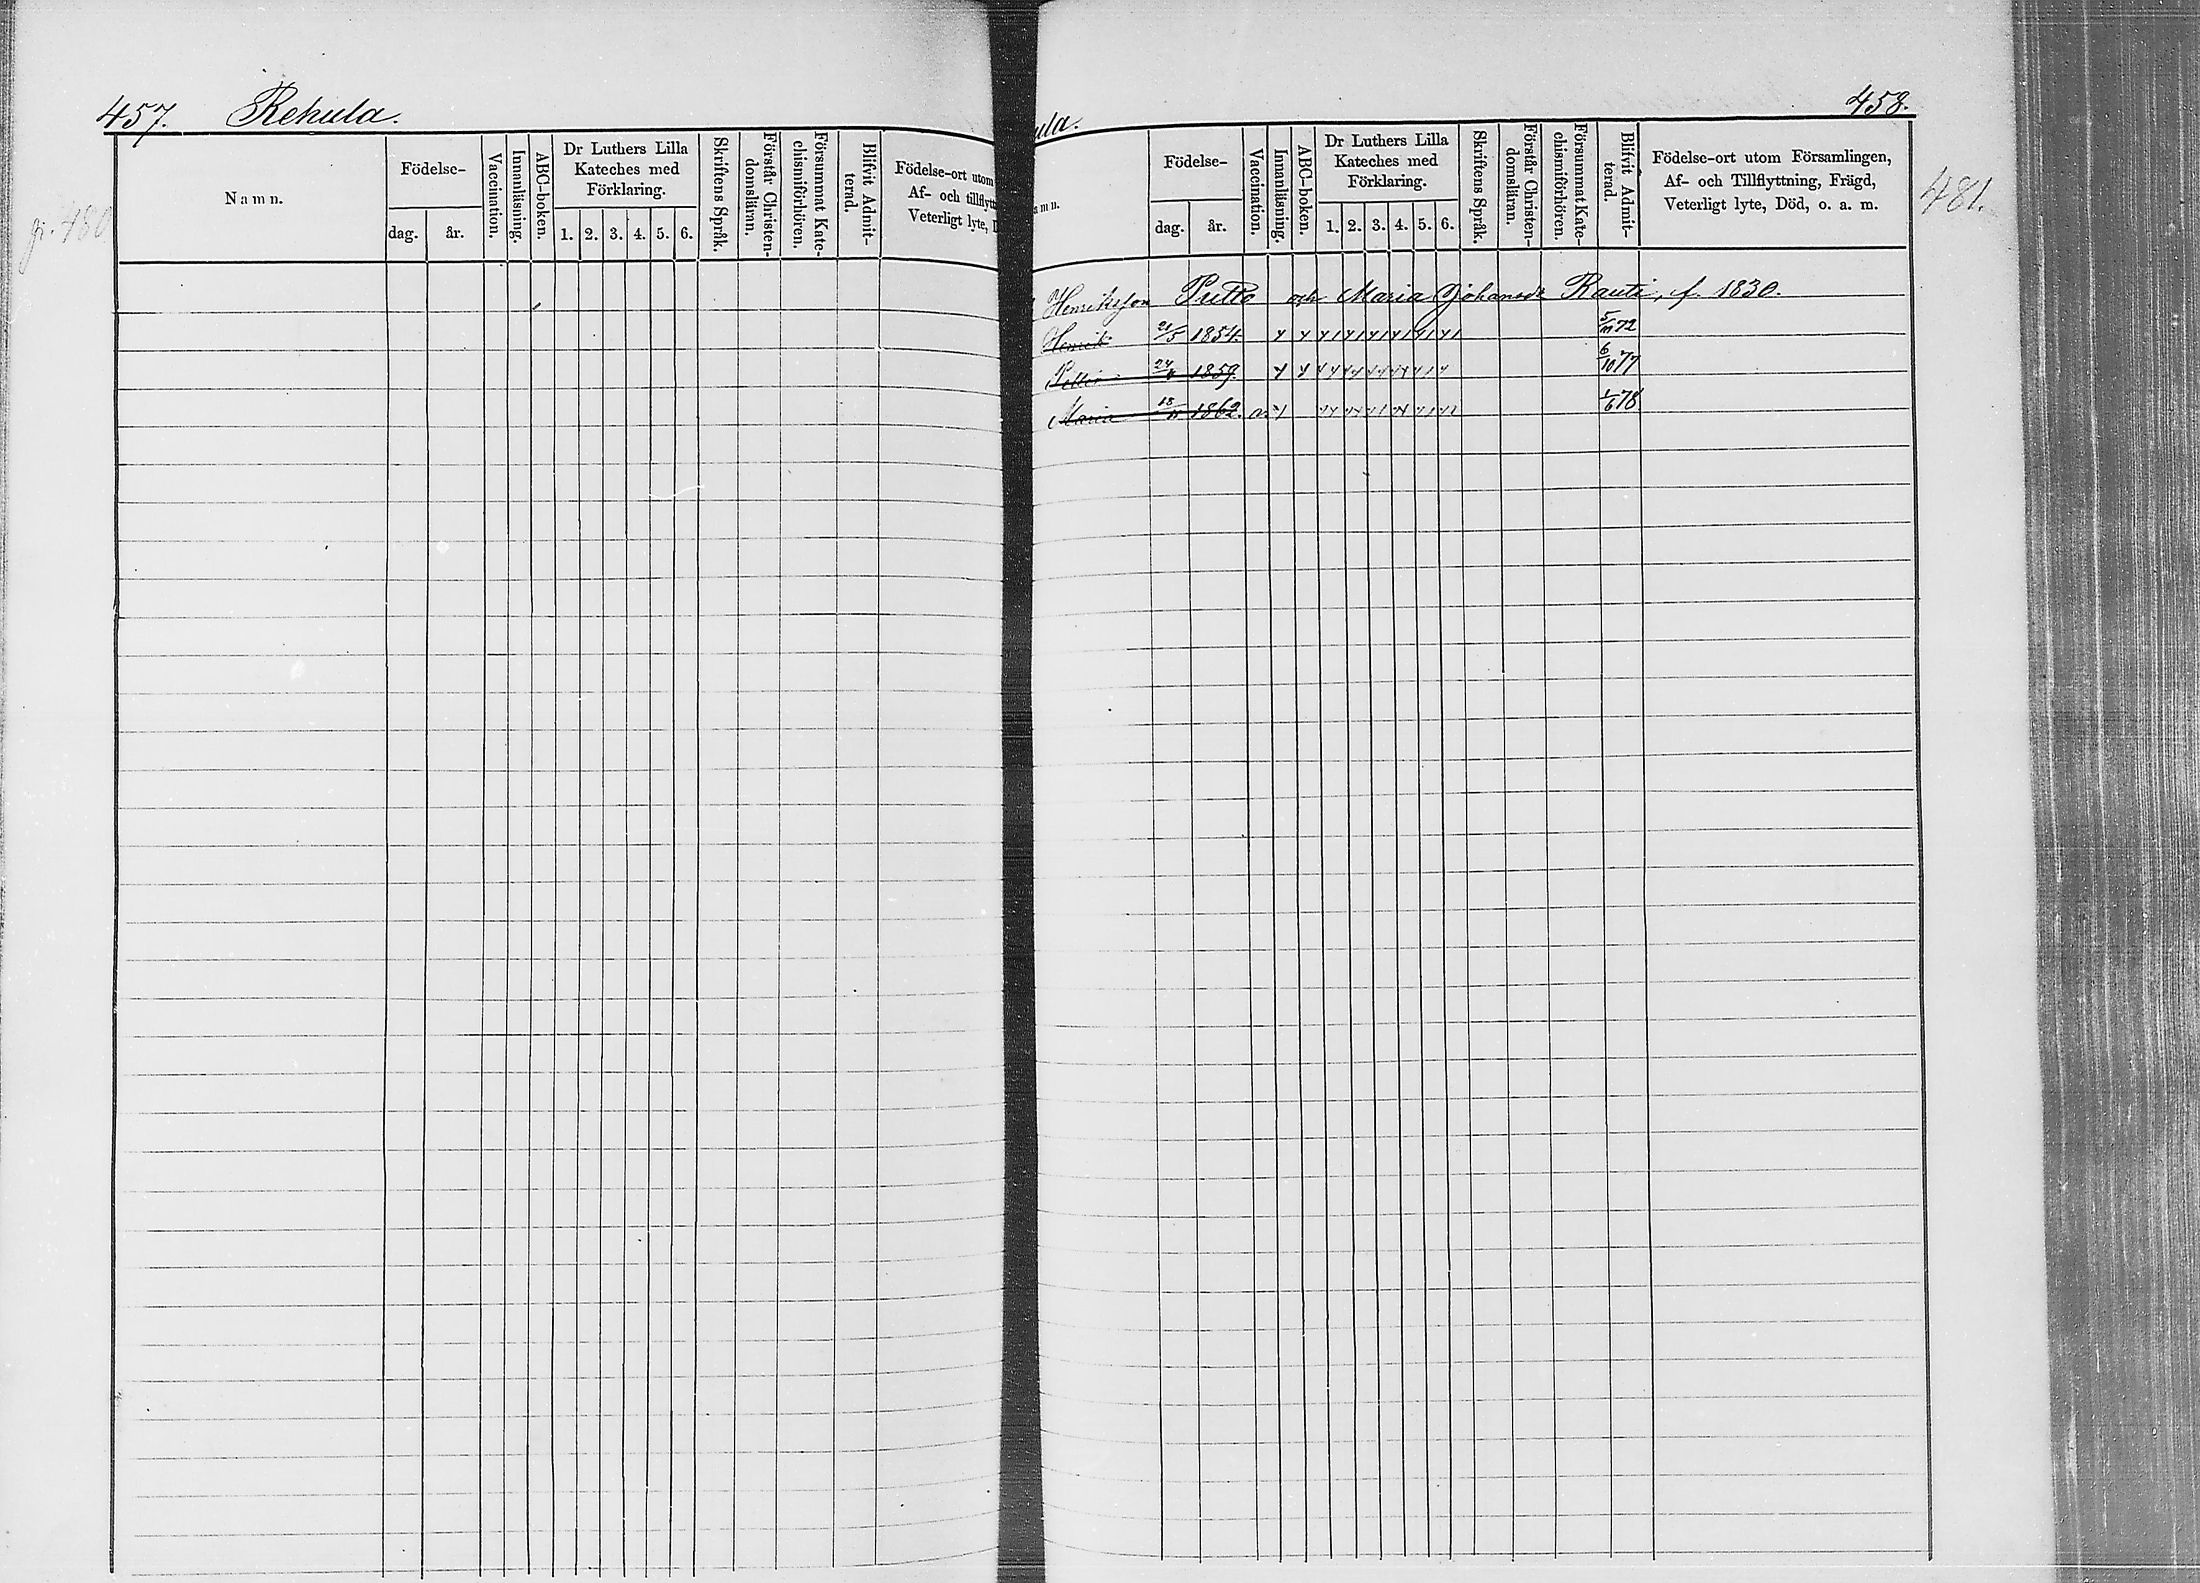 457. Rehula.
gr. 480
Namn.
Födelse-
dag. år.
Vaccination.
Innanläsning.
ABC-boken.
Dr Luthers Lilla
Kateches med
Förklaring.
1. 2. 3. 4. 5. 6.
Skriftens Språk.
Förstår Christen-
domsläran.
Försummat Kate-
chismiförhören.
Blifvit Admit-
terad.
Födelse-ort utom
Af- och tillflytt
Veterligt lyte, D
ula. 458.
481.
amn.
Födelse-
dag. år.
Vaccination.
Innanläsning.
ABC-boken.
Dr Luthers Lilla
Kateches med
Förklaring.
1. 2. 3. 4. 5. 6.
Skriftens Språk.
Förstår Christen-
domsläran.
Försummat Kate-
chismiförhören.
Blifvit Admit-
terad.
Födelse-ort utom Församlingen,
Af- och Tillflyttning, Frägd,
Veterligt lyte, Död, o. a. m.
Henriksson Putto och Maria Johansdr Rauti, f. 1830.
Henrik 21/5 1854. 5/11 72
Petter 1859. 6/10 77
Maria 1862. v. 1/6 78